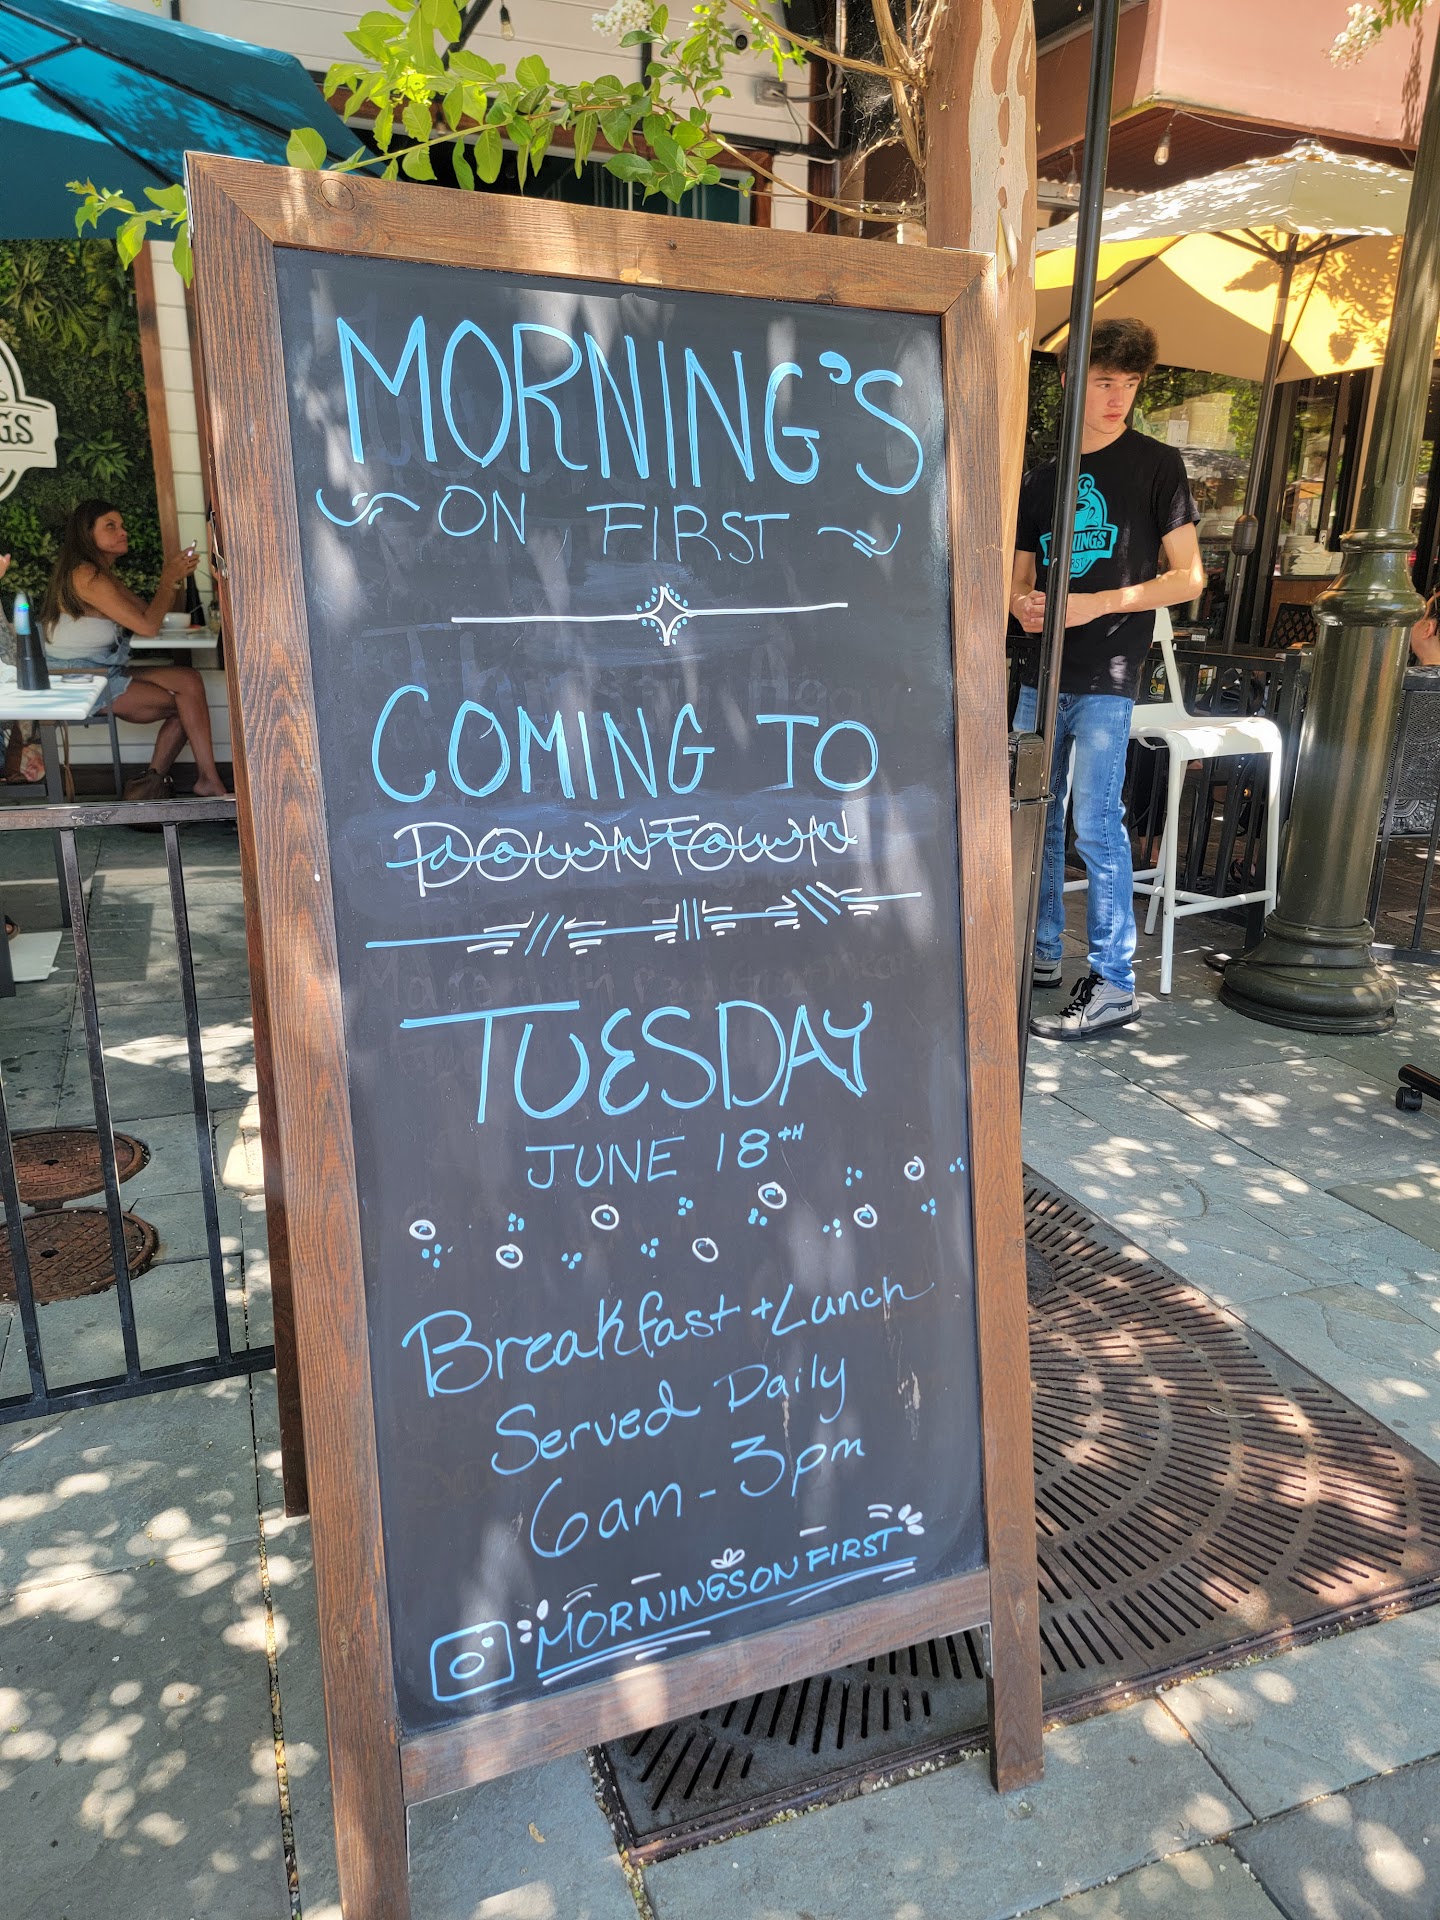 MORNING'S
ON FIRST
COMING TO
DOWNTOWN
TUESDAY
JUNE 18TH
Breakfast + Lunch
Served Daily
6am - 3pm
MORNINGSONFIRST